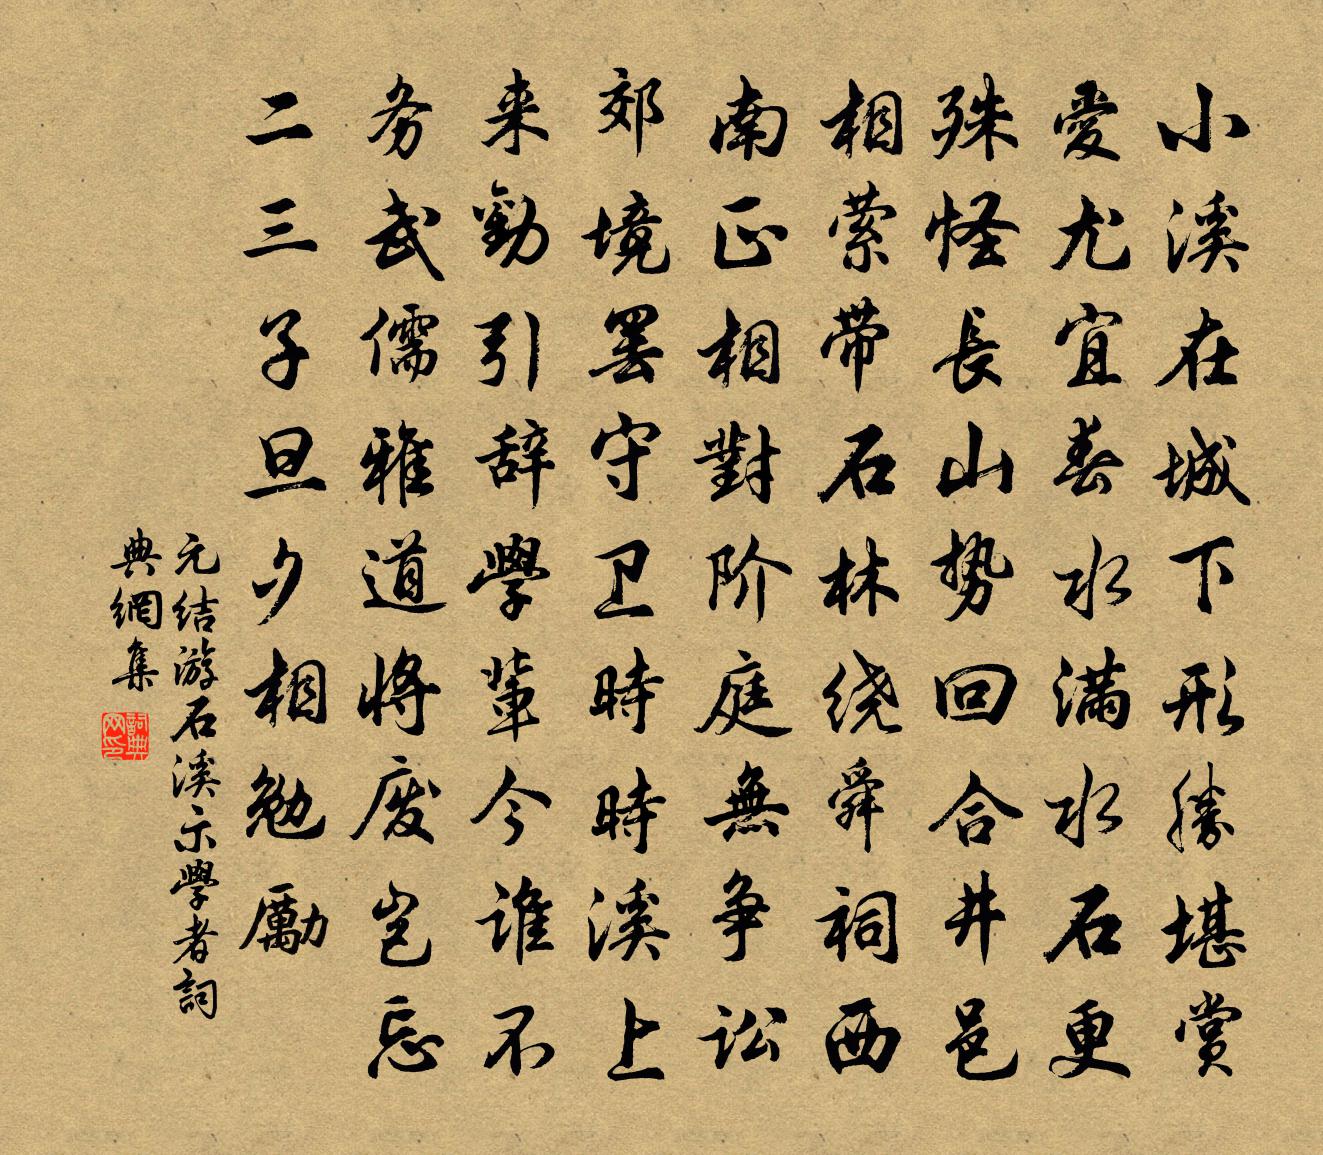 小溪在城下形勝堪賞
愛尤宜春水满水石更
殊怪長山势回合井邑
相萦带石林绕舜祠西
南正相對阶庭無争讼
郊境罢守卫時時溪上
来勸引辞學輩今谁不
务武儒雅道將废岂忘
二三子旦夕相勉勵
元结游石溪示學者詞
典網集
詞典
网印